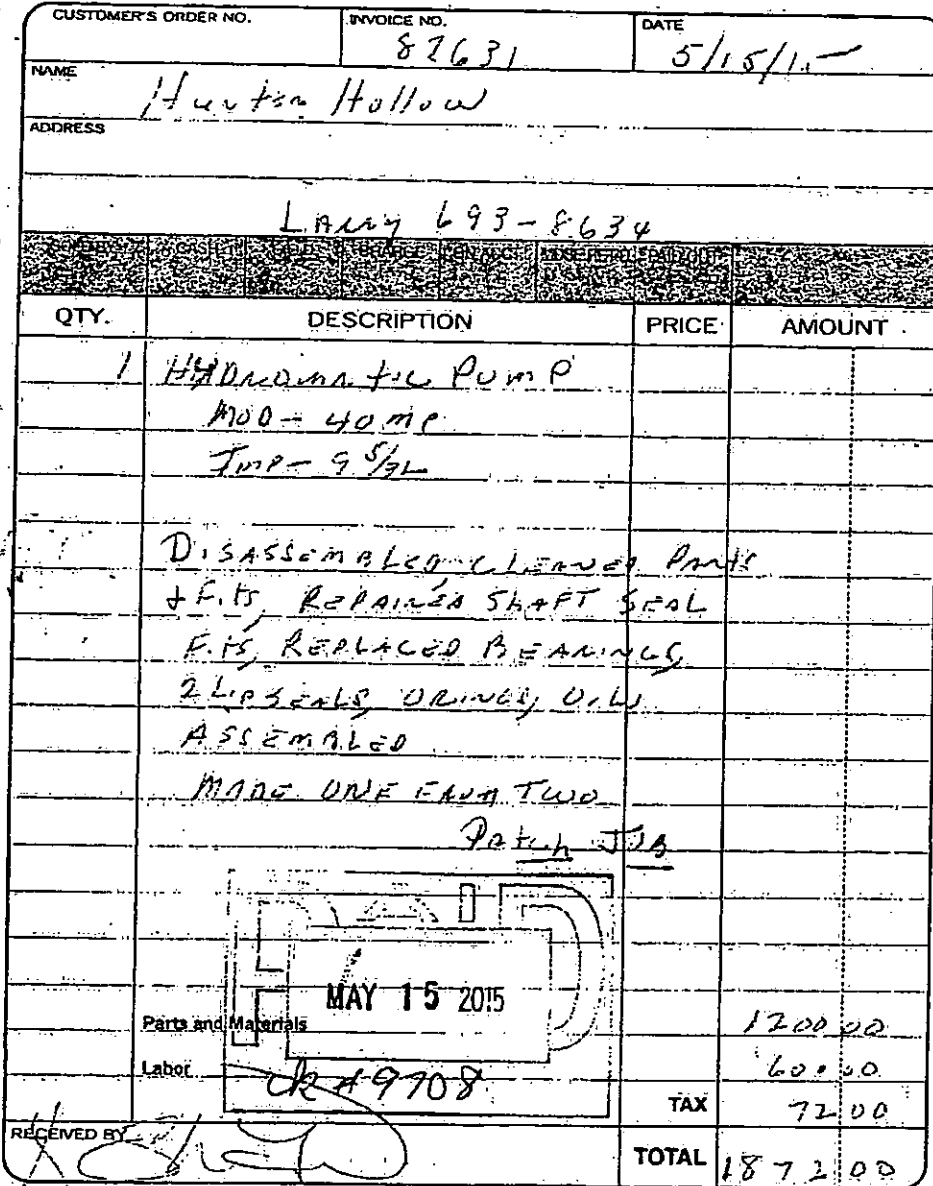 CUSTOMER'S ORDER NO. INVOICE NO. DATE
82631 5/15/15
NAME
Hunter Hollow
ADDRESS
Larry 693-8634
QTY. DESCRIPTION PRICE AMOUNT
1 HYDROMATIC PUMP
MOD - 40 MP
Imp - 9 5/32
DISASSEMBLED, CLEANED PARTS
+ FITS, REPAIRED SHAFT SEAL
FITS, REPLACED BEARINGS,
2 LIPSEALS, ORINGS, OIL
ASSEMBLED
MADE ONE FROM TWO
Patch JOB
PAID
MAY 15 2015
Parts and Materials 1200 00
Labor ck # 9708 600 00
TAX 72 00
RECEIVED BY
X
TOTAL 1872 00